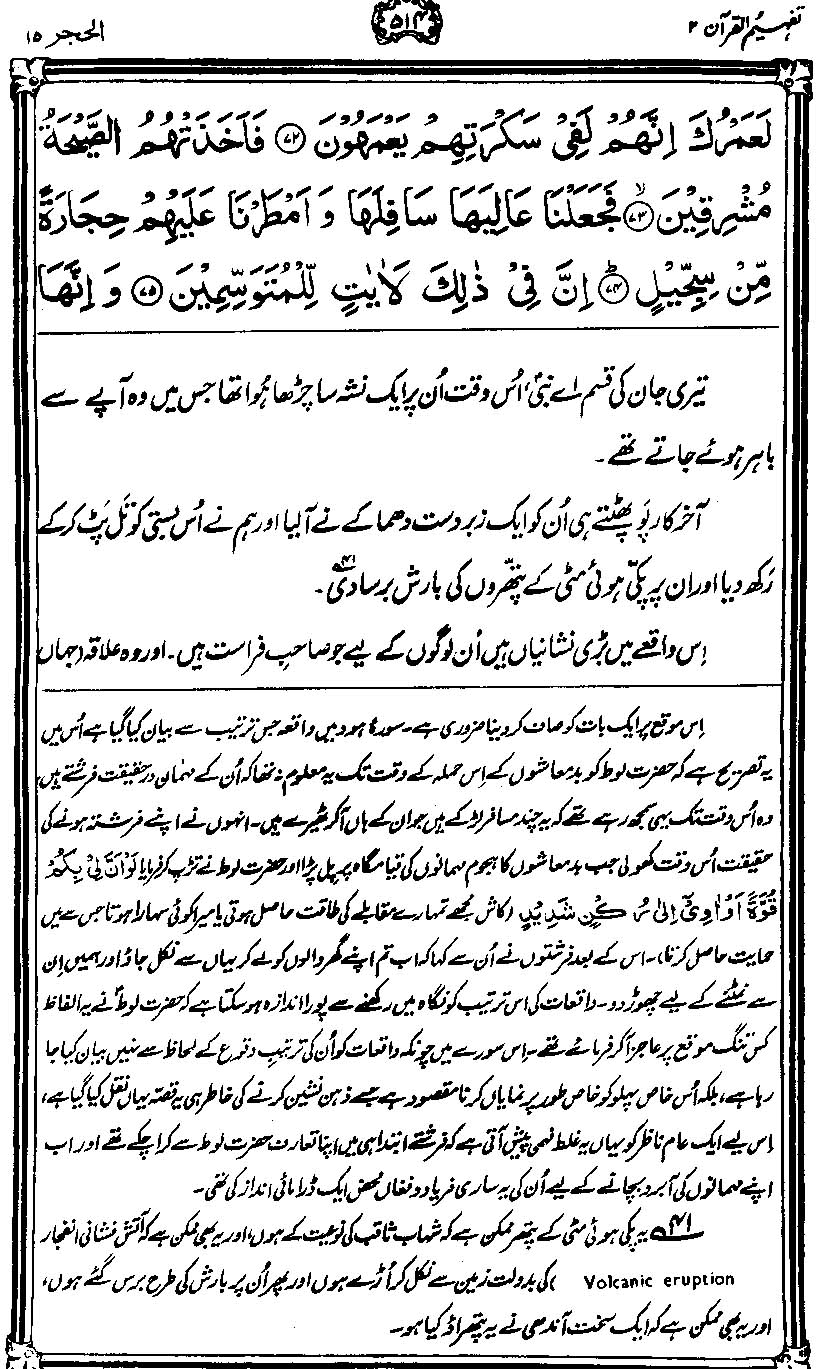 تفہیم القرآن ۲
۵۱۴
الحجر ۱۵
لَعَمْرُكَ اِنَّهُمْ لَفِیْ سَكْرَتِهِمْ یَعْمَهُوْنَ ﴿۷۲﴾ فَاَخَذَتْهُمُ الصَّیْحَةُ
مُشْرِقِیْنَ ﴿۷۳﴾ۙ فَجَعَلْنَا عَالِیَهَا سَافِلَهَا وَ اَمْطَرْنَا عَلَیْهِمْ حِجَارَةً
مِّنْ سِجِّیْلٍ ﴿۷۴﴾ؕ اِنَّ فِیْ ذٰلِكَ لَاٰیٰتٍ لِّلْمُتَوَسِّمِیْنَ ﴿۷۵﴾ وَ اِنَّهَا
تیری جان کی قسم اے نبیؐ، اُس وقت اُن پر ایک نشہ سا چڑھا ہُوا تھا جس میں وہ آپے سے
باہر ہوئے جاتے تھے۔
آخرکار پَو پھٹتے ہی اُن کو ایک زبردست دھماکے نے آ لیا اور ہم نے اُس بستی کو تَل پَٹ کر کے
رکھ دیا اور ان پر پکّی ہوئی مٹی کے پتھّروں کی بارش برسا دی۴۱۔
اِس واقعے میں بڑی نشانیاں ہیں اُن لوگوں کے لیے جو صاحبِ فراست ہیں۔ اور وہ علاقہ (جہاں
اِس موقع پر ایک بات کو صاف کر دینا ضروری ہے۔ سورۂ ہود میں واقعہ جس ترتیب سے بیان کیا گیا ہے اُس میں
یہ تصریح ہے کہ حضرت لوط کو بدمعاشوں کے اِس حملہ کے وقت تک یہ معلوم نہ تھا کہ اُن کے مہمان درحقیقت فرشتے ہیں،
وہ اُس وقت تک یہی سمجھ رہے تھے کہ یہ چند مسافر لڑکے ہیں جو ان کے ہاں آ کر ٹھیرے ہیں۔ انہوں نے اپنے فرشتہ ہونے کی
حقیقت اُس وقت کھولی جب بدمعاشوں کا ہجوم مہمانوں کی قیام گاہ پر پل پڑا اور حضرت لوط نے تڑپ کر فرمایا لَوْ اَنَّ لِیْ بِكُمْ
قُوَّةً اَوْ اٰوِیْٓ اِلٰی رُكْنٍ شَدِیْدٍ (کاش مجھے تمہارے مقابلے کی طاقت حاصل ہوتی یا میرا کوئی سہارا ہوتا جس سے میں
حمایت حاصل کرتا)۔ اس کے بعد فرشتوں نے اُن سے کہا کہ اب تم اپنے گھر والوں کو لے کر یہاں سے نکل جاؤ اور ہمیں اِن
سے نمٹنے کے لیے چھوڑ دو۔ واقعات کی اس ترتیب کو نگاہ میں رکھنے سے پورا اندازہ ہو سکتا ہے کہ حضرت لوطؑ نے یہ الفاظ
کس تنگ موقع پر عاجز آ کر فرمائے تھے۔ اِس سورے میں چونکہ واقعات کو اُن کی ترتیبِ وقوع کے لحاظ سے نہیں بیان کیا جا
رہا ہے، بلکہ اُس خاص پہلو کو خاص طور پر نمایاں کرنا مقصود ہے جسے ذہن نشین کرنے کی خاطر ہی یہ قصّہ یہاں نقل کیا گیا ہے،
اِس لیے ایک عام ناظر کو یہاں یہ غلط فہمی پیش آتی ہے کہ فرشتے ابتدا ہی میں اپنا تعارف حضرت لوط سے کرا چکے تھے اور اب
اپنے مہمانوں کی آبرو بچانے کے لیے اُن کی یہ ساری فریاد و فغاں محض ایک ڈرامائی انداز کی تھی۔
۴۱ یہ پکی ہوئی مٹی کے پتھر ممکن ہے کہ شہابِ ثاقب کی نوعیت کے ہوں، اور یہ بھی ممکن ہے کہ آتش فشانی انفجار
Volcanic eruption) کی بدولت زمین سے نکل کر اُڑے ہوں اور پھر اُن پر بارش کی طرح برس گئے ہوں،
اور یہ بھی ممکن ہے کہ ایک سخت آندھی نے یہ پتھراؤ کیا ہو۔